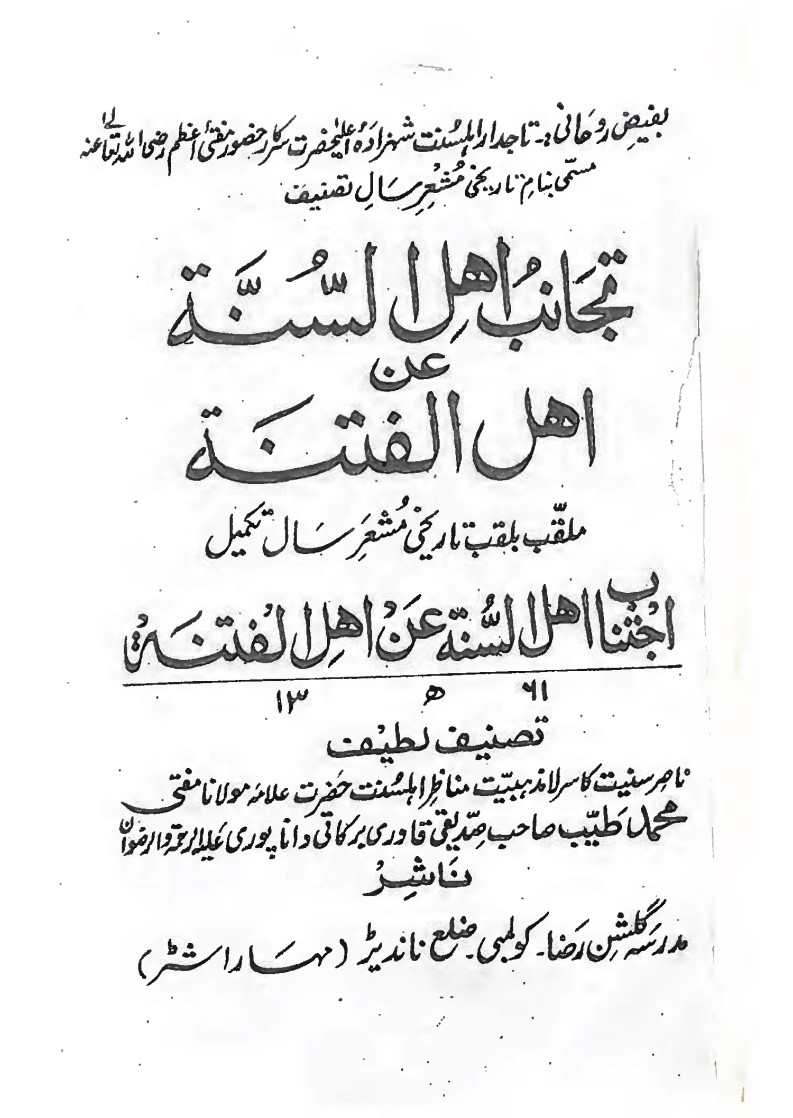 بفیضِ روحانی:۔ تاجدارِ اہلسُنت شہزادۂ اعلیٰحضرت سرکار حضور مفتیٔ اعظم رضی اللہ تعالےٰ عنہ
مسمّٰی بنامِ تاریخی مُشعِرِ سَالِ تصنیف
تجَانبُ اھلِ السُّنَّة
عن
اھل الفتنَة
ملقّب بلقب تاریخی مُشعَر سَال تکمیل
اجْتناب اھل السُّنّة عَنْ اھلِ الفُتنَة
۱۳ ھ ۶۱
تصنیف لطیف
ناصرِ سنیت کاسرِ لامذہبیّت مناظرِ اہلسُنت حَضرت علامہ مولانا مفتی
محمد طَیّب صاحب صِدّیقی قادری برکاتی داناپوری عَلیہ الرحمۃ والرضوان
نَاشِرْ
مدرسَہ گلشنِ رَضا۔ کولمبی۔ ضلع ناندیڑ (مہَاراشٹر)